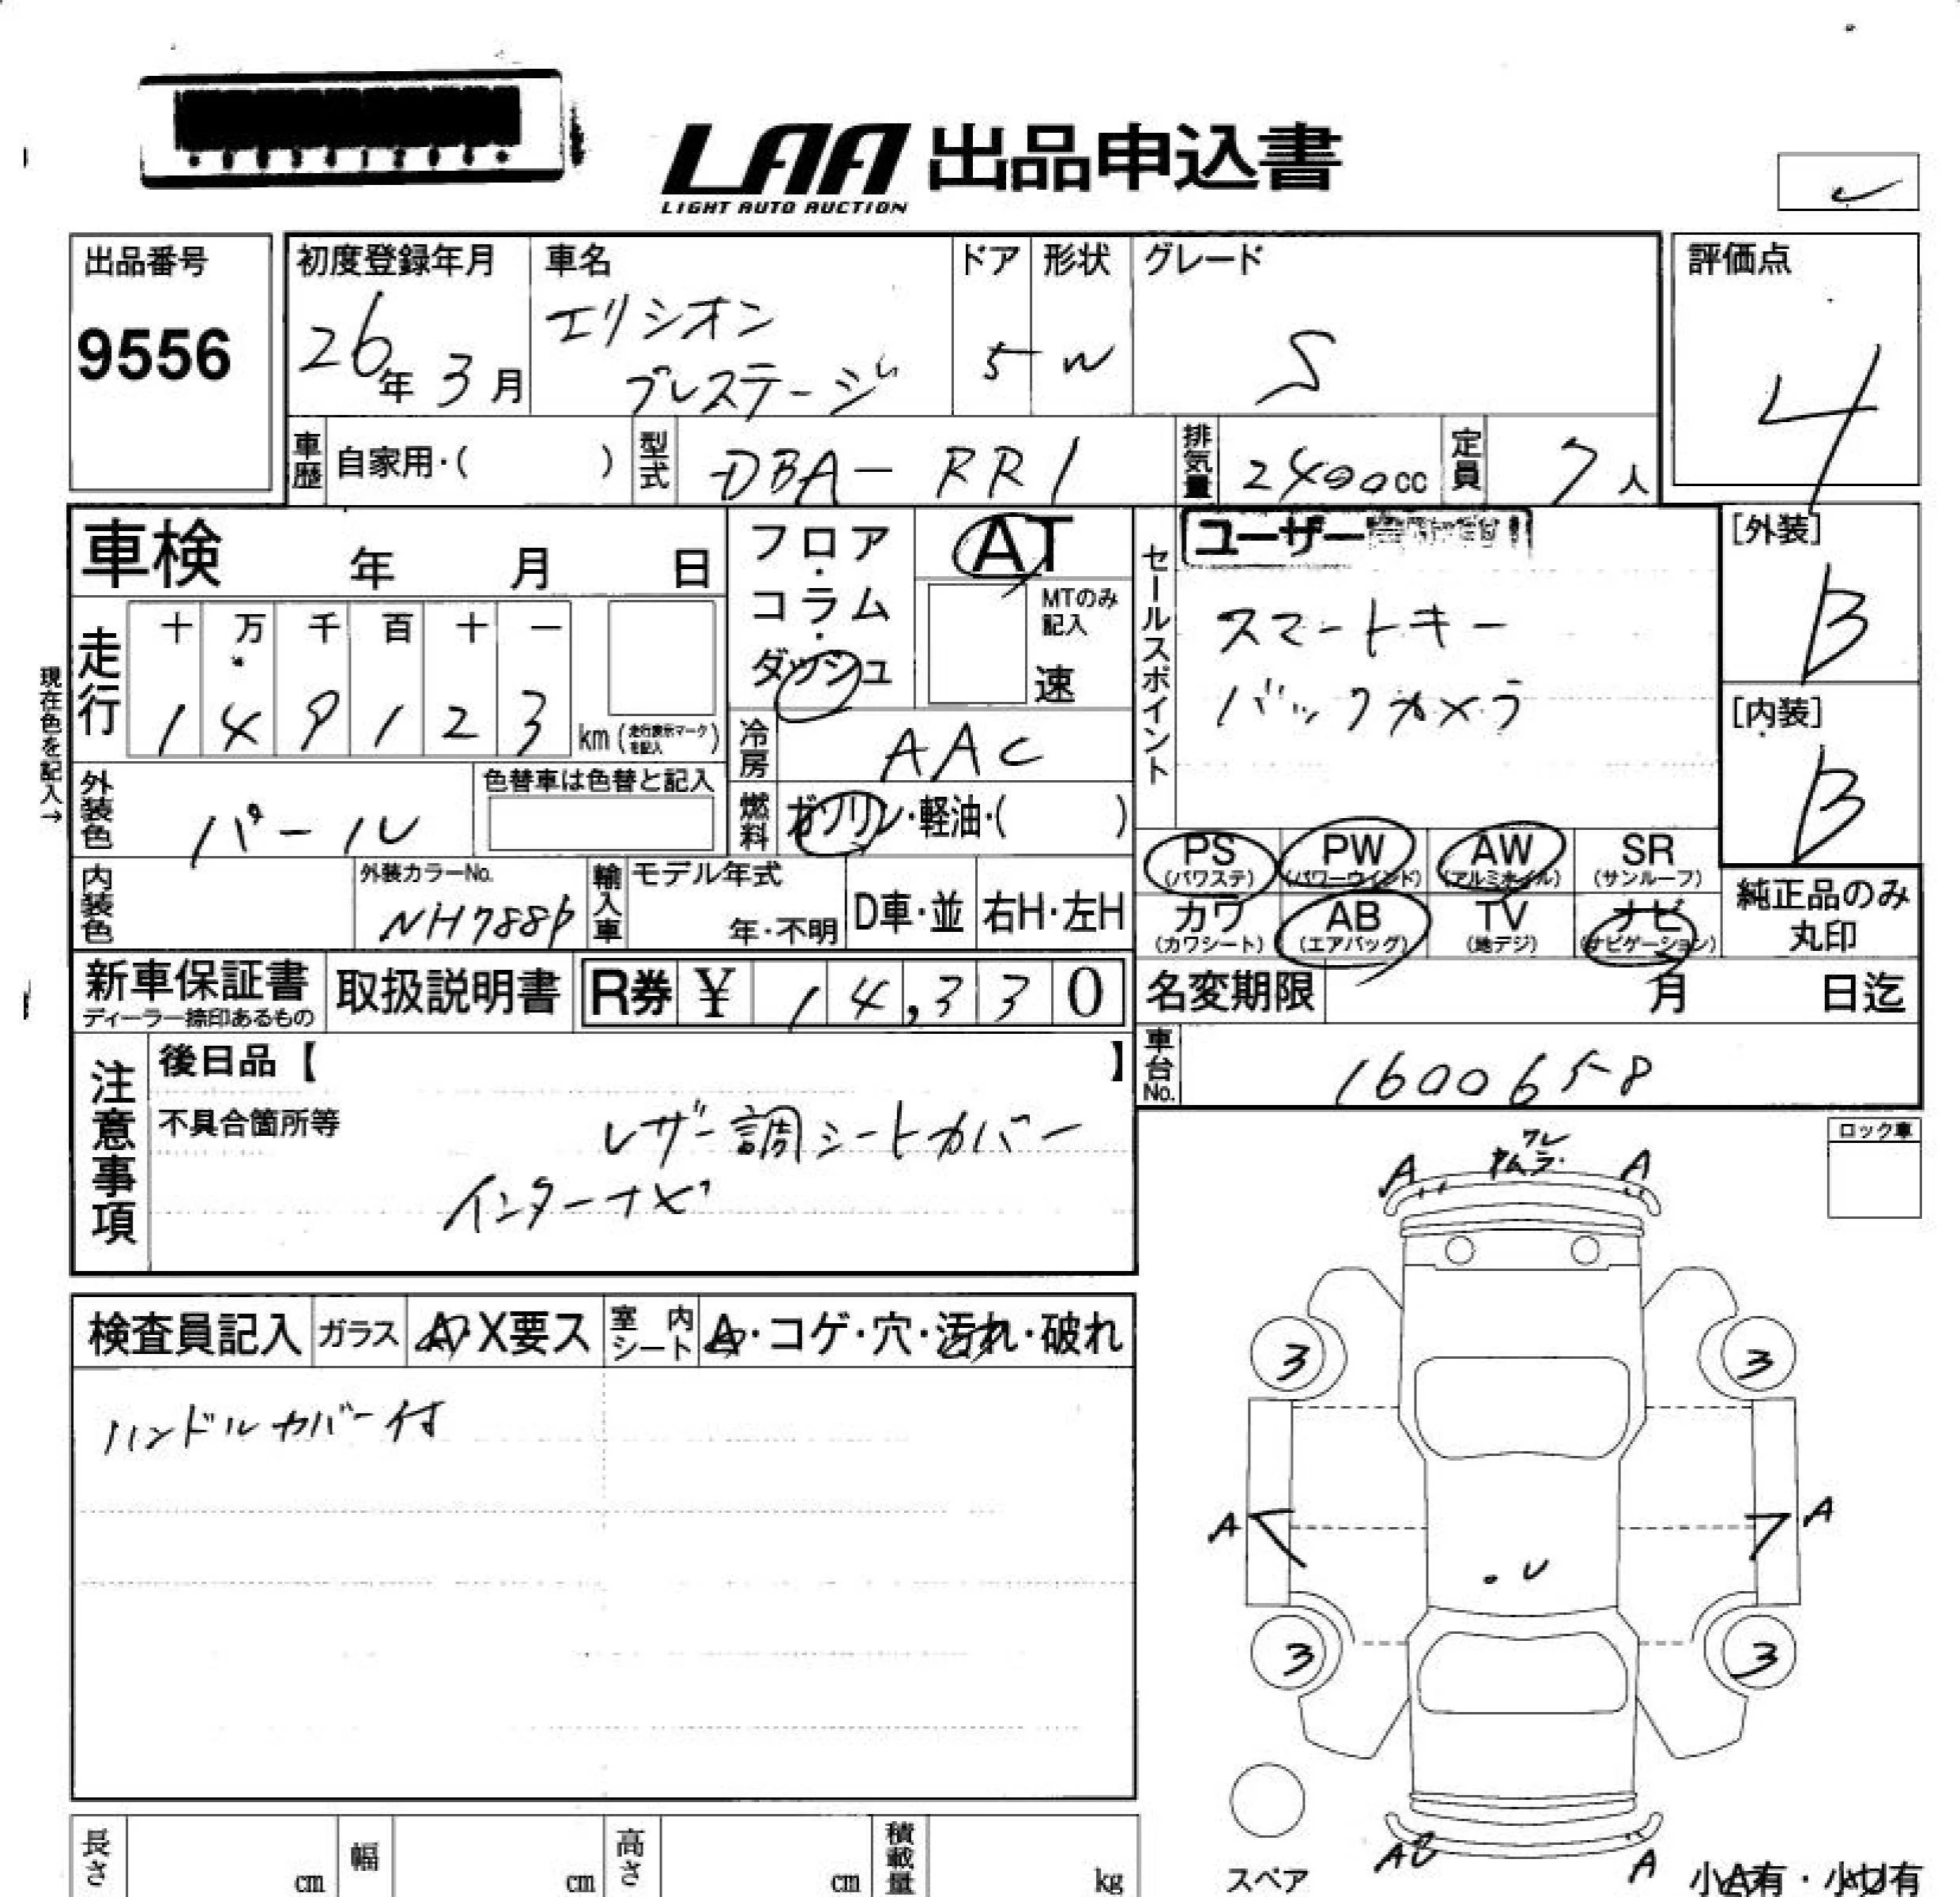 LAA 出品申込書
LIGHT AUTO AUCTION
出品番号
9556
初度登録年月
26年3月
車名
エリシオン
プレステージ
ドア
5
形状
W
グレード
S
評価点
4
車歴 自家用・( )
型式 DBA-RR1
排気量 2400cc
定員 7人
車検 年 月 日
フロア・コラム・ダッシュ
AT
MTのみ記入
速
現在色を記入→
走行
十 万 千 百 十 一
1 4 9 1 2 3 km(走行表示マークを記入)
冷房 AAC
燃料 ガソリン・軽油・( )
外装色 パール
色替車は色替と記入
内装色
外装カラーNo.
NH788P
輸入車
モデル年式
年・不明
D車・並
右H・左H
セールスポイント
ユーザー
スマートキー
バックカメラ
[外装]
B
[内装]
B
PS (パワステ)
PW (パワーウインド)
AW (アルミホイル)
SR (サンルーフ)
カワ (カワシート)
AB (エアバッグ)
TV (地デジ)
ナビ (ナビゲーション)
純正品のみ
丸印
新車保証書
ディーラー捺印あるもの
取扱説明書
R券 ¥ 14,330
名変期限 月 日迄
車台No. 1600658
注意事項
後日品【 】
不具合箇所等
レザー調シートカバー
インターナビ
ロック車
検査員記入 ガラス A・X要ス 室内シート A・コゲ・穴・汚れ・破れ
ハンドルカバー付
A ワレ A
ムラ
3 3
A A
U
3 3
スペア
A A
小A有・小U有
長さ cm 幅 cm 高さ cm 積載量 kg